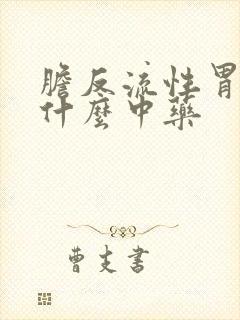 膽反流性胃
什麼中藥
曹支書